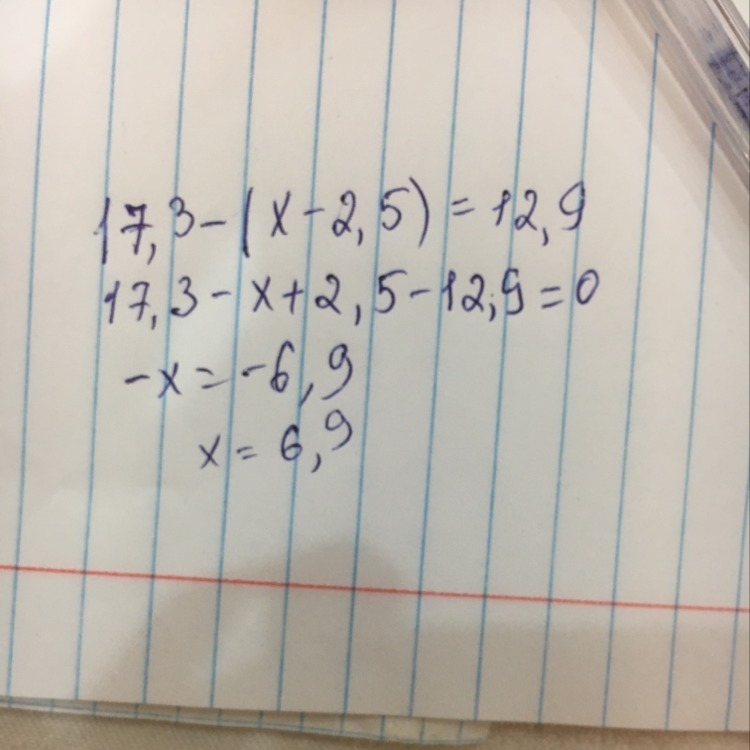 17,3-(x-2,5)=12,9
17,3-x+2,5-12,9=0
-x=-6,9
x=6,9